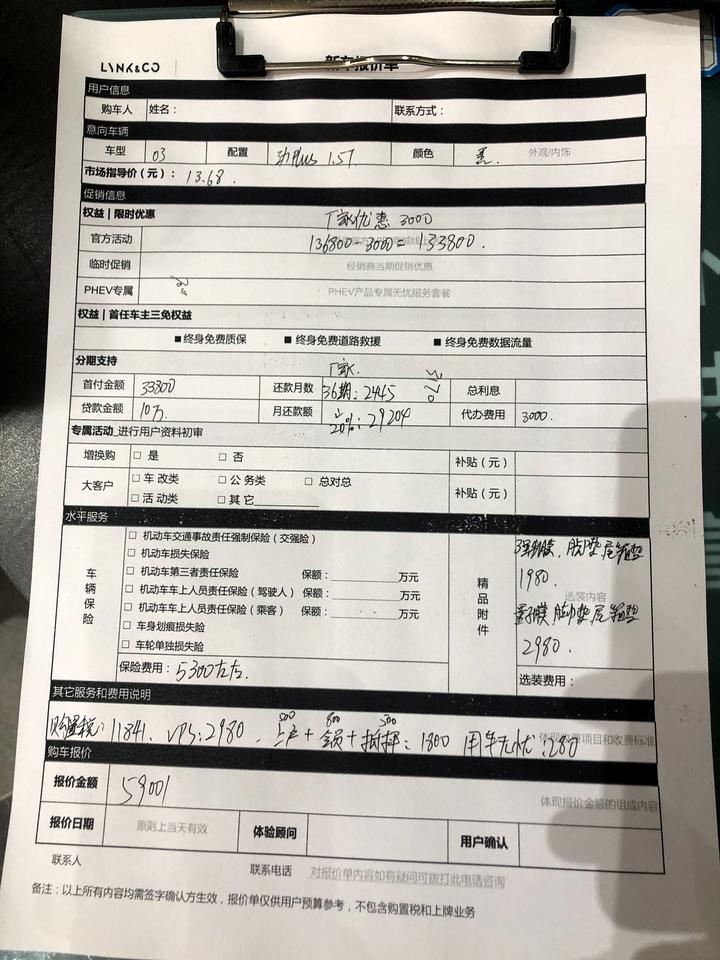 LYNK&CO 新车报价单
用户信息
购车人 姓名： 联系方式：
意向车辆
车型 03 配置 劲Plus 1.5T. 颜色 黑. 外观/内饰
市场指导价（元）： 13.68.
促销信息
权益|限时优惠 厂家优惠 3000
官方活动 136800-3000= 133800.
临时促销 经销商当期促销优惠
PHEV专属 PHEV产品专属无忧服务套餐
权益|首任车主三免权益
■终身免费质保 ■终身免费道路救援 ■终身免费数据流量
分期支持 厂家.
首付金额 33800 还款月数 36期：2445 总利息
贷款金额 10万. 月还款额 20%：29204 代办费用 3000.
专属活动_进行用户资料初审
增换购 □ 是 □ 否 补贴（元）
大客户 □ 车改类 □ 公务类 □ 总对总 补贴（元）
□ 活动类 □ 其它
水平服务
车辆保险 □ 机动车交通事故责任强制保险（交强险）
□ 机动车损失保险
□ 机动车第三者责任保险 保额：________万元
□ 机动车车上人员责任保险（驾驶人） 保额：________万元
□ 机动车车上人员责任保险（乘客） 保额：________万元
□ 车身划痕损失险
□ 车轮单独损失险
保险费用：5300左右.
精品附件 脚垫 尾箱垫
1980.
选装内容
脚垫 尾箱垫
2980.
选装费用：
其它服务和费用说明
500 800 500
购置税：11841. VPS:2980. 上户+金融+抵押：1800 用车无忧：280
购车报价
报价金额 59001 体现报价金额的组成内容
报价日期 原则上当天有效 体验顾问 用户确认
联系人 联系电话 对报价单内容如有疑问可拨打此电话咨询
备注：以上所有内容均需签字确认方生效，报价单仅供用户预算参考，不包含购置税和上牌业务